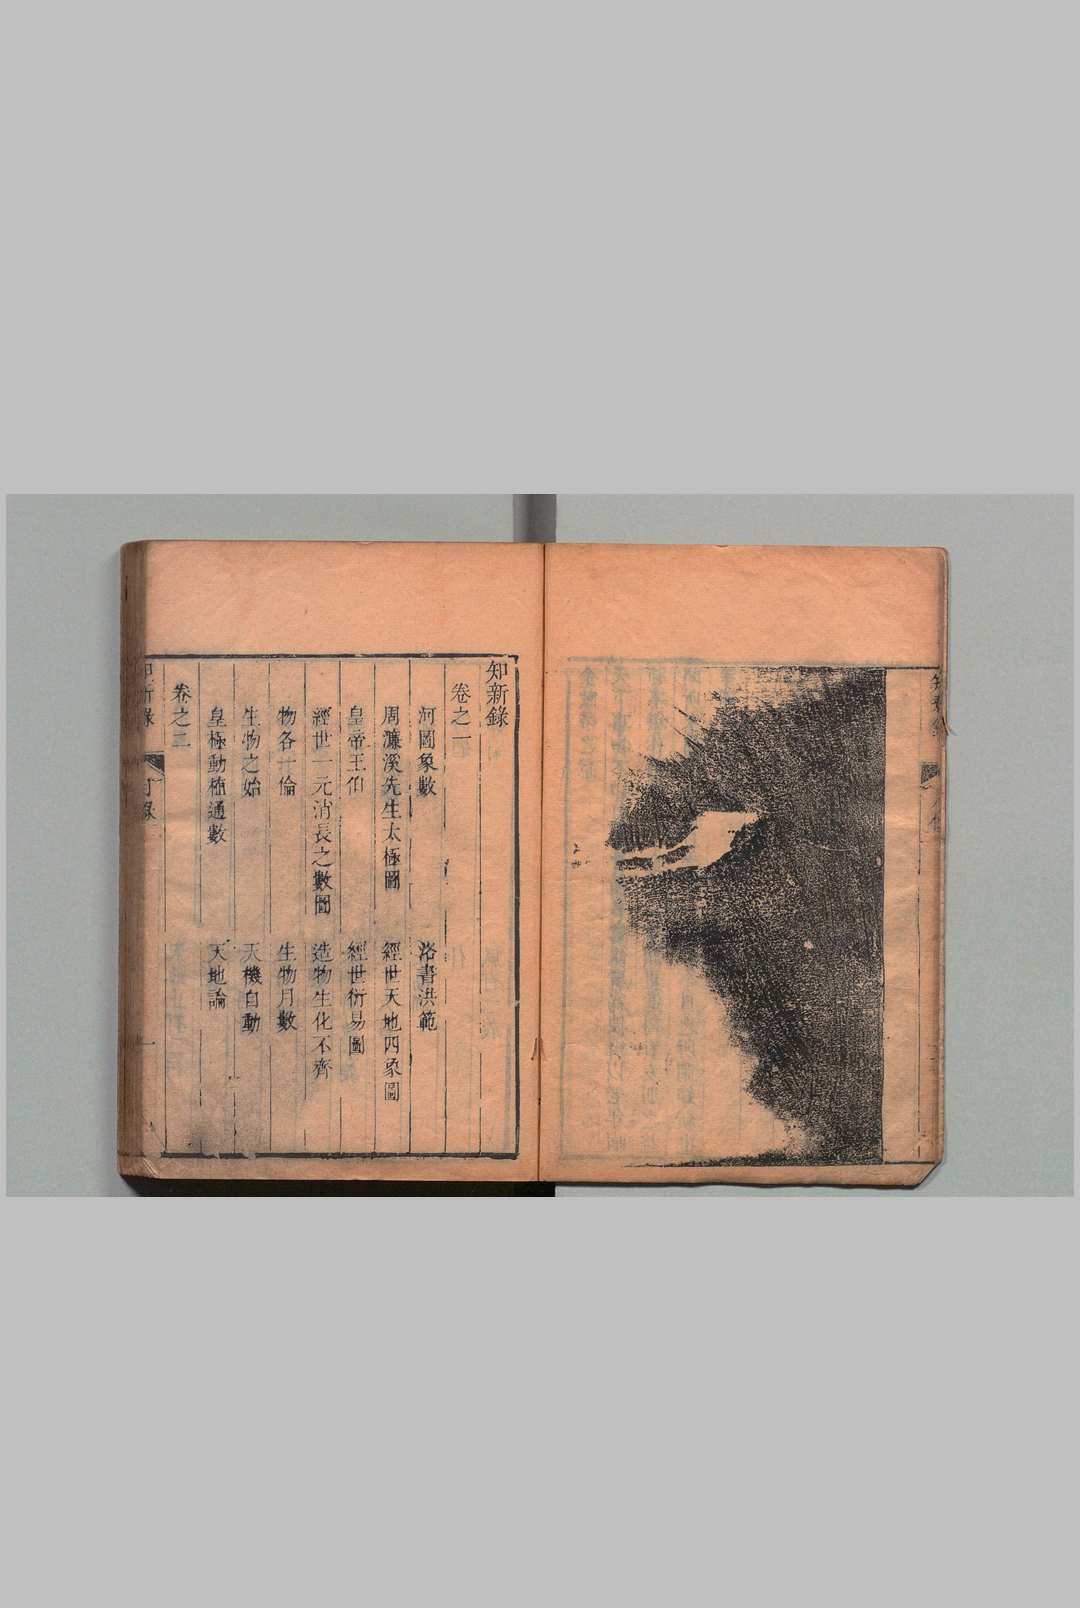 知新錄
卷之一
河圖象數　洛書洪範
周濂溪先生太極圖　經世天地四象圖
皇帝王伯　經世衍易圖
經世一元消長之數圖　造物生化不齊
物各一倫　生物月數
生物之始　天機自動
皇極動植通數　天地論
卷之二
知新錄　目錄　一